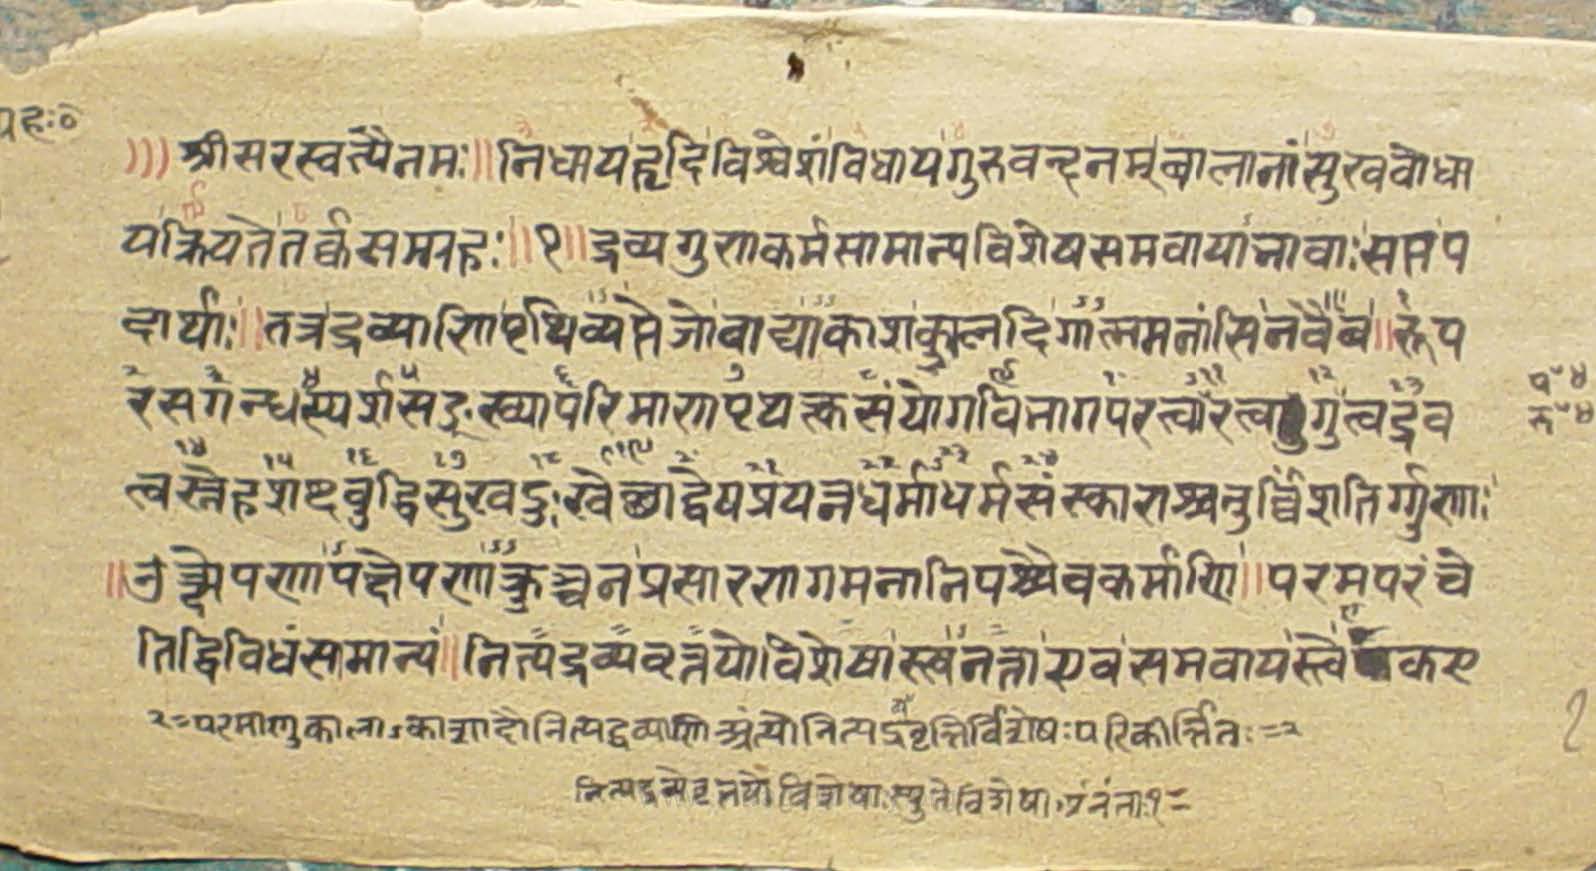 ग्रहः०
श्रीसरस्वत्यैनमः॥निधायहृदिविश्वेशंविधायगुरुवन्दनम्बालानांसुखबोधा
यक्रियतेतर्क्कसङ्ग्रहः॥१॥द्रव्यगुणकर्मसामान्यविशेषसमवायाभावाःसप्तप
दार्थाः॥तत्रद्रव्याणिपृथिव्यप्तेजोवाय्वाकाशकालदिगात्ममनांसिनवैव॥रूप
रसगन्धस्पर्शसङ्ख्यापरिमाणपृथक्त्वसंयोगविभागपरत्वापरत्वगुरुत्वद्रव
त्वस्नेहशब्दबुद्धिसुखदुःखेच्छाद्वेषप्रयत्नधर्माधर्मसंस्काराश्चतुर्विंशतिर्गुणाः
॥उत्क्षेपणापक्षेपणाकुञ्चनप्रसारणगमनानिपञ्चैवकर्माणि॥परमपरंचे
तिद्विविधंसामान्यं॥नित्यद्रव्यवृत्तयोविशेषास्त्वनन्ताएवसमवायस्त्वेकए
२=परमाणुकालाऽकाशादौनित्यद्रव्याणिअंत्योनित्यद्रव्यवृत्तिर्विशेषःपरिकीर्त्तितः=२
नित्यद्रव्यवृत्तयोविशेषास्तुतेविशेषाअनंताः१=